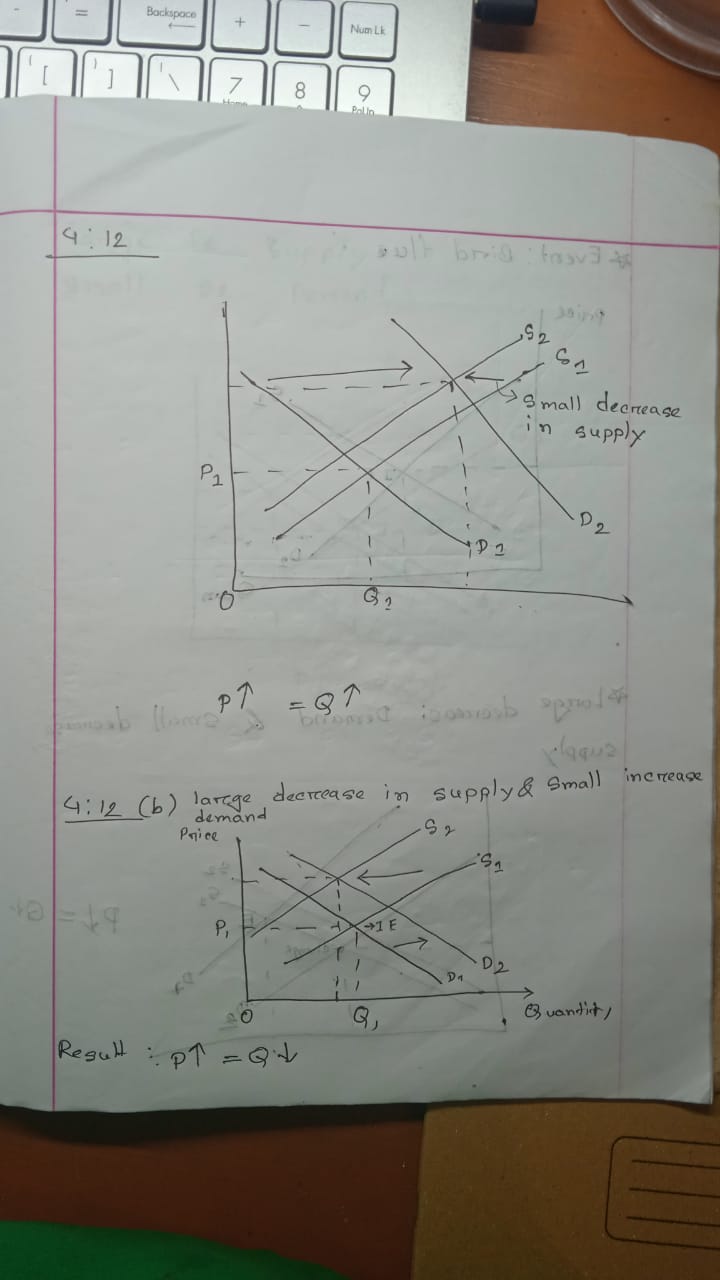 Backspace
Num Lk
[
]
\
7
8
9
Home
PgUp
4:12
S2
S1
Small decrease
in supply
P1
D2
D1
O
Q1
P↑ = Q↑
4:12 (b) large decrease in supply & small increase
demand
Price
S2
S1
P1
IE
D2
D1
O
Q1
Quantity
Result : P↑ = Q↓